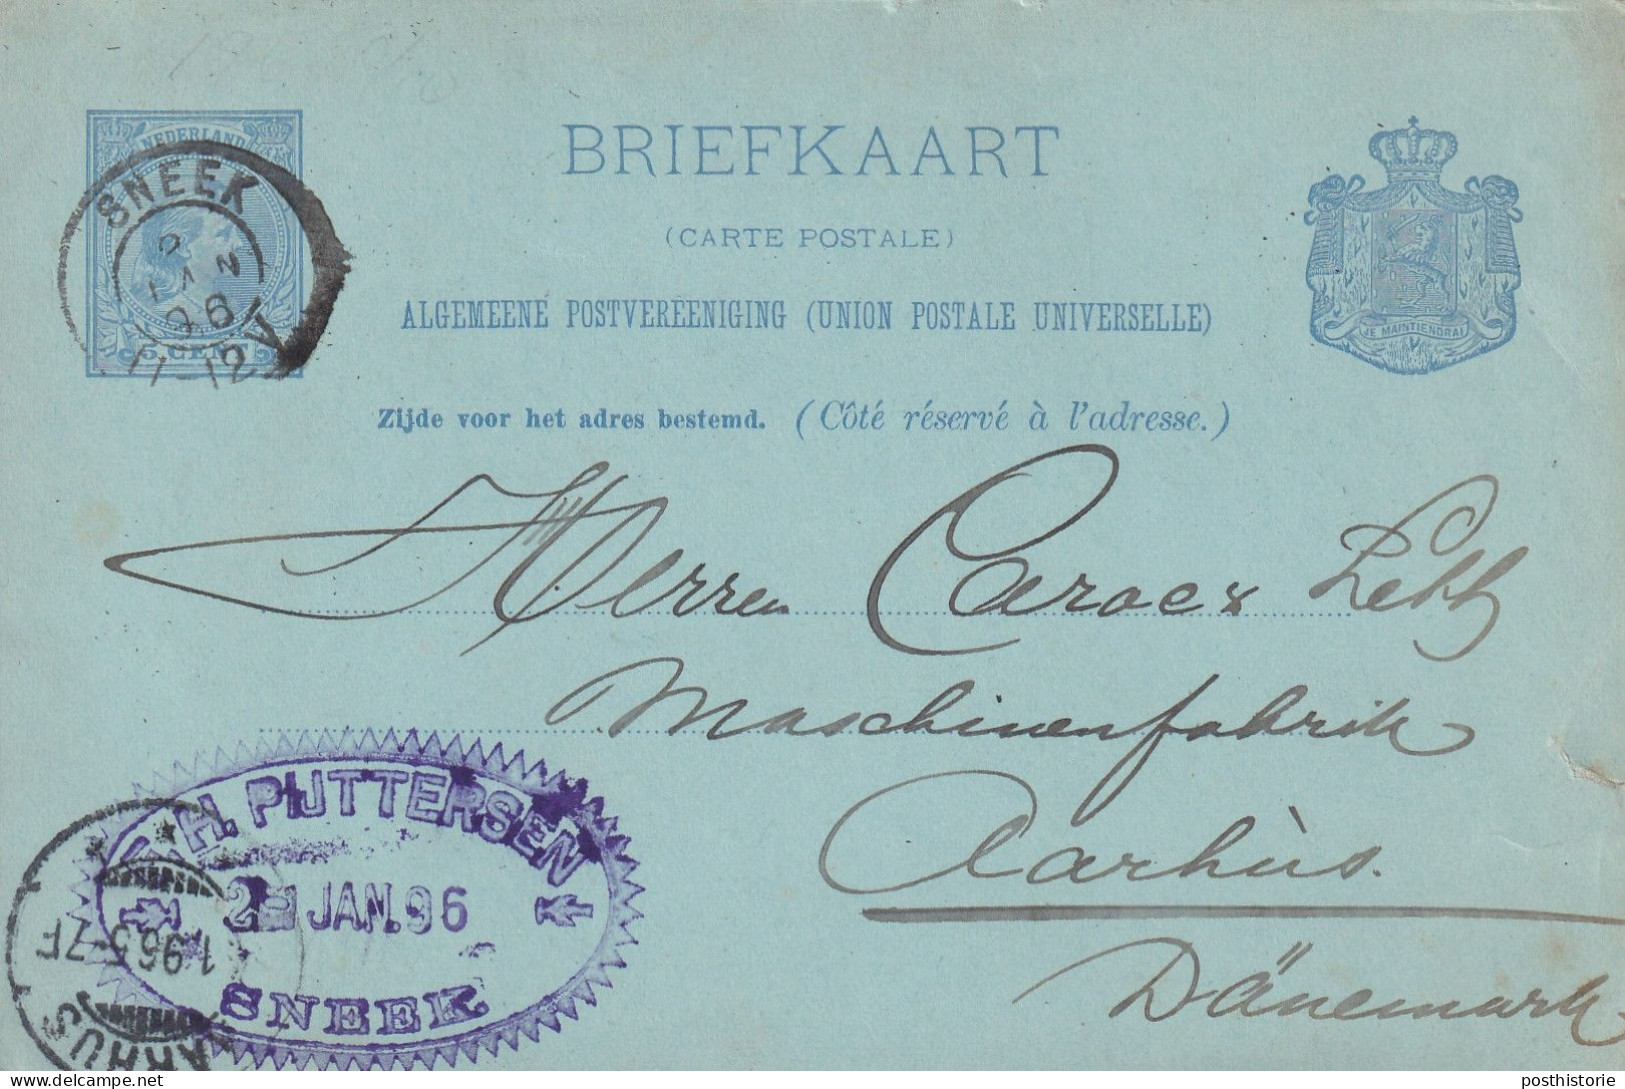 NEDERLAND
5 CENT
SNEEK
2
JAN
96
11-12V
BRIEFKAART
(CARTE POSTALE)
ALGEMEENE POSTVEREENIGING (UNION POSTALE UNIVERSELLE)
JE MAINTIENDRAI
Zijde voor het adres bestemd. (Côté réservé à l'adresse.)
Herren Caroc &
Maschinenfabrik
Aarhùs.
Dänemark
H. PIJTTERSEN
2 JAN. 96
SNEEK
1 96 5-7F
AARHUS
posthistorie